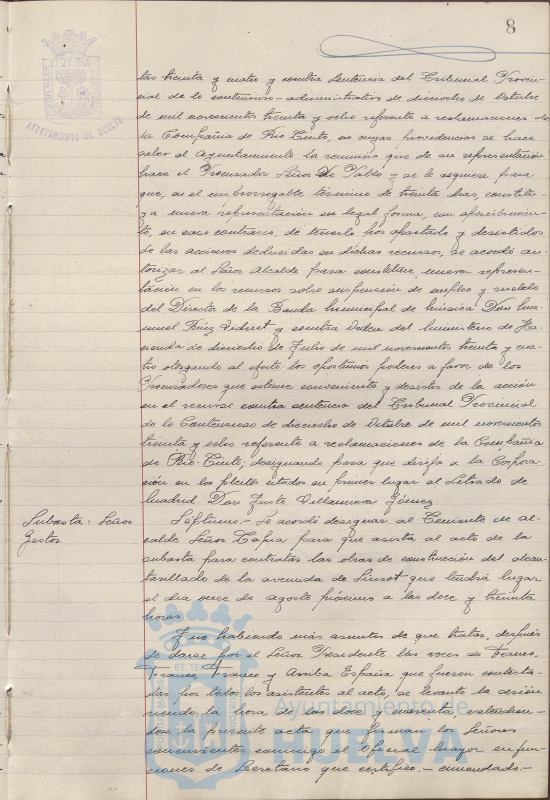 8
AYUNTAMIENTO DE HUELVA
ta y cuatro y contra sentencia del Tribunal Provin-
cial de lo contencioso-administrativo de dieciocho de Octubre
de mil novecientos treinta y ocho referente a reclamaciones de
la Compañia de Rio Tinto, en cuyas providencias se hace
saber al Ayuntamiento la renuncia que de su representación
hace el Procurador Señor De Pablo y se le requiere para
que, en el improrrogable término de treinta dias, constitu-
ya nueva representación en legal forma, con apercibimien-
to, en caso contrario, de tenerlo por apartado y desistido
de las acciones deducidas en dichos recursos, se acordó au-
torizar al Señor Alcalde para constituir nueva represen-
tación en los recursos sobre suspensión de empleo y sueldo
del Director de la Banda Municipal de Música Don Ma-
nuel y contra Orden del Ministerio de Ha-
cienda de dieciocho de Julio de mil novecientos treinta y cua-
tro otorgando al efecto los oportunos poderes a favor de los
Procuradores que estime conveniente y desistir de la acción
en el recurso contra sentencia del Tribunal Provincial
de lo Contencioso de dieciocho de Octubre de mil novecientos
treinta y ocho referente a reclamaciones de la Compañia
de Rio-Tinto, designando para que dirija a la Corpora-
ción en los pleitos citados en primer lugar al Letrado de
Madrid Don Justo Villanueva Gómez
Subasta: Señor
Séptimo.- Se acordó designar al Teniente de al-
calde Señor Tapia para que asista al acto de la
subasta para contratar las obras de construcción del alcan-
tarillado de la avenida de que tendrá lugar
el dia once de agosto próximo a las doce y treinta
horas
Y no habiendo más asuntos de que tratar, después
de darse por el Señor Presidente las voces de Franco,
Franco, Franco y Arriba España que fueron contesta-
das por todos los asistentes al acto, se levantó la sesión
siendo la hora de las doce y cuarenta, extendien-
dose la presente acta que firman los Señores
concurrentes conmigo el Oficial Mayor en fun-
ciones de Secretario que certifico.- enmendado.-
Ayuntamiento de
HUELVA